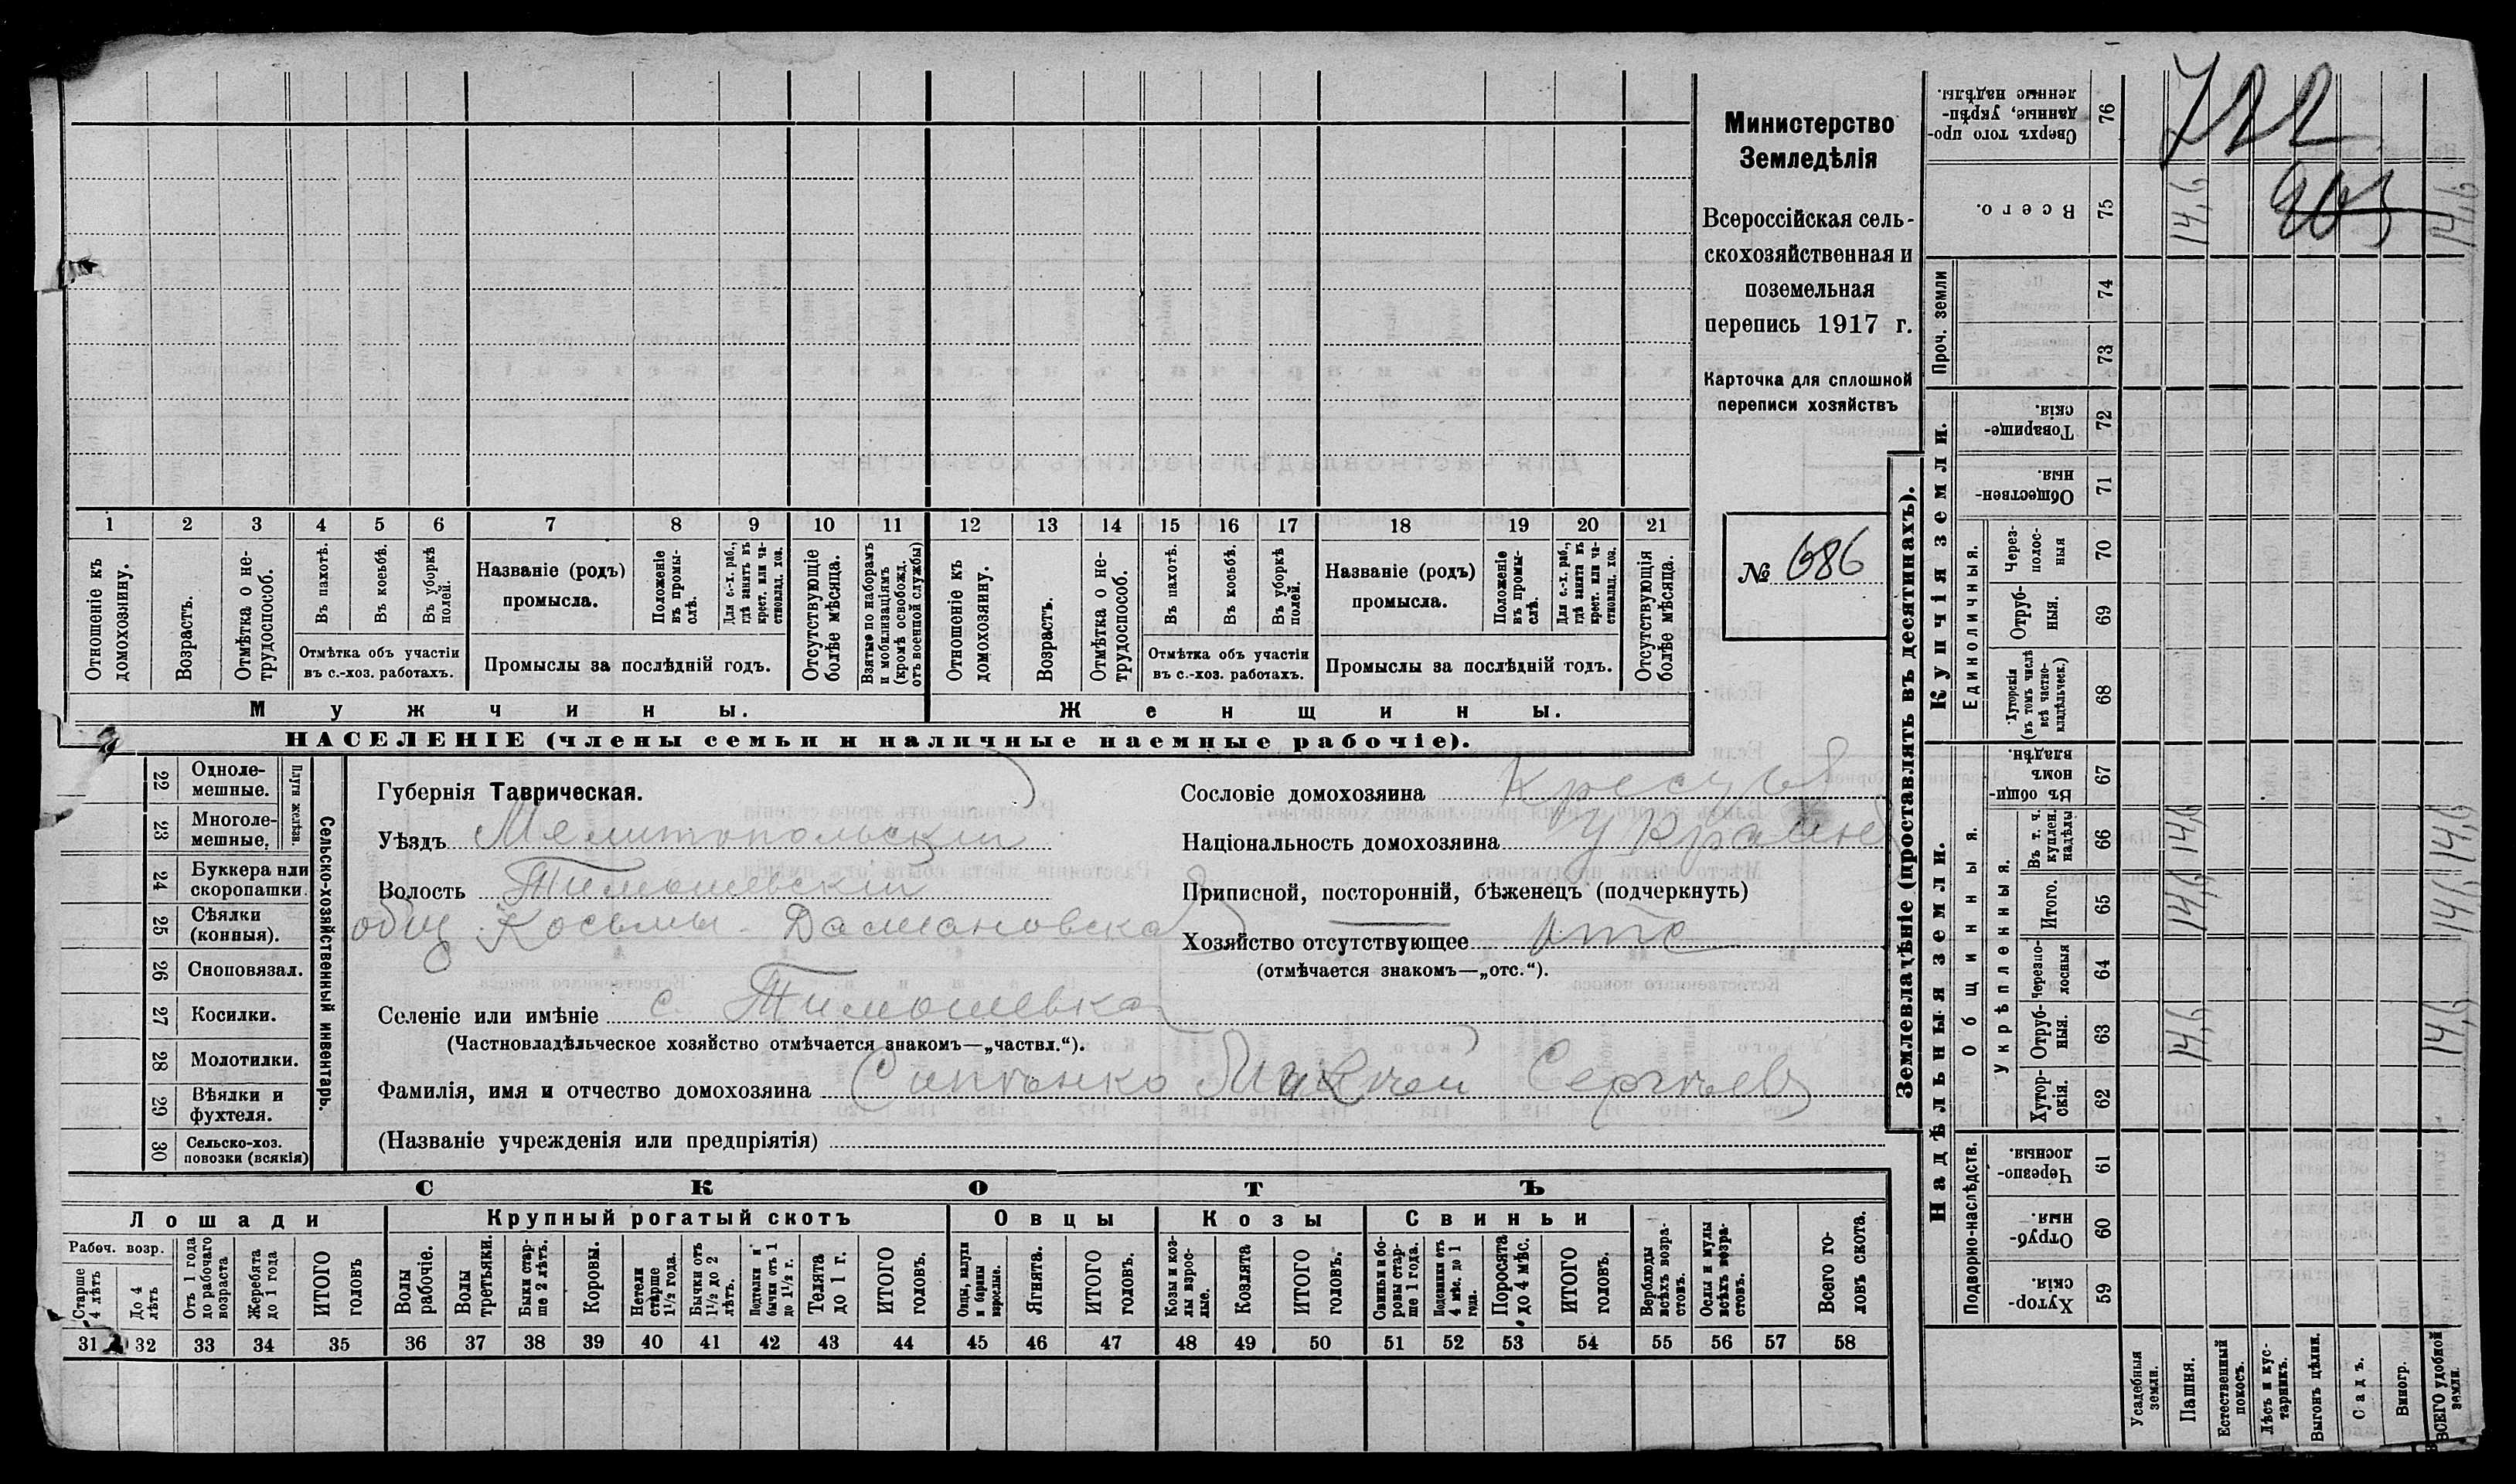 Министерство
Земледѣлія
Всероссійская сель-
скохозяйственная и
поземельная
перепись 1917 г.
Карточка для сплошной
переписи хозяйствъ
№ 686
1 2 3 4 5 6 7 8 9 10 11 12 13 14 15 16 17 18 19 20 21
Отношеніе къ домохозяину.
Возрастъ.
Отмѣтка о не-
трудоспособ.
Въ пахотѣ.
Въ косьбѣ.
Въ уборкѣ полей.
Отмѣтка объ участіи
въ с.-хоз. работахъ.
Названіе (родъ)
промысла.
Положеніе въ промы-
слѣ.
Для с.-х. раб., гдѣ занятъ въ крест. или ча-
стновлад. хоз.
Промыслы за послѣдній годъ.
Отсутствующіе болѣе мѣсяца.
Взятые по наборамъ и мобилизаціямъ (кромѣ освобожд. отъ военной службы)
Отношеніе къ домохозяину.
Возрастъ.
Отмѣтка о не-
трудоспособ.
Въ пахотѣ.
Въ косьбѣ.
Въ уборкѣ полей.
Отмѣтка объ участіи
въ с.-хоз. работахъ.
Названіе (родъ)
промысла.
Положеніе въ промы-
слѣ.
Для с.-х. раб., гдѣ занята въ крест. или ча-
стновлад. хоз.
Промыслы за послѣдній годъ.
Отсутствующія болѣе мѣсяца.
Мужчины.
Женщины.
НАСЕЛЕНІЕ (члены семьи и наличные наемные рабочіе).
Сельско-хозяйственный инвентарь.
Плуги желѣзн.
22 Одноле-
мешные.
23 Многоле-
мешные.
24 Буккера или
скоропашки.
25 Сѣялки
(конныя).
26 Сноповязал.
27 Косилки.
28 Молотилки.
29 Вѣялки и
фухтеля.
30 Сельско-хоз.
повозки (всякія)
Губернія Таврическая.
Уѣздъ Мелитопольскій
Волость Тимошевскій
общ. Косьмы-Дамиановская
Селеніе или имѣніе с. Тимошевка
(Частновладѣльческое хозяйство отмѣчается знакомъ—„частвл.“).
Фамилія, имя и отчество домохозяина Сергѣев
(Названіе учрежденія или предпріятія)
Сословіе домохозяина Крест
Національность домохозяина Украине
Приписной, посторонній, бѣженецъ (подчеркнуть)
Хозяйство отсутствующее отс
(отмѣчается знакомъ—„отс.“).
СКОТЪ
Лошади
Крупный рогатый скотъ
Овцы
Козы
Свиньи
Рабоч. возр.
Старше 4 лѣтъ
До 4 лѣтъ
Отъ 1 года до рабочаго возраста
Жеребята до 1 года
ИТОГО головъ
Волы рабочіе.
Волы третьяки.
Быки стар-
ше 2 лѣтъ.
Коровы.
Нетели старше 1½ года.
Бычки отъ 1½ до 2 лѣтъ.
Подтелки и бычки отъ 1 до 1½ г.
Телята до 1 г.
ИТОГО головъ.
Овцы, валухи и бараны взрослые.
Ягнята.
ИТОГО головъ.
Козы и коз-
лы взрос-
лые.
Козлята
ИТОГО головъ.
Свиньи и бо-
ровы стар-
ше 1 года.
Подсвинки отъ 4 мѣс. до 1 года.
Поросята до 4 мѣс.
ИТОГО головъ.
Верблюды всѣхъ возра-
стовъ.
Ослы и мулы всѣхъ возра-
стовъ.
Всего го-
ловъ скота.
31 32 33 34 35 36 37 38 39 40 41 42 43 44 45 46 47 48 49 50 51 52 53 54 55 56 57 58
Землевладѣніе (проставлять въ десятинахъ).
Надѣльныя земли.
Купчія земли.
Проч. земли
Подворно-наслѣдств.
Общинныя.
Укрѣпленныя.
Единоличныя.
Хутор-
скія. 59
Отруб-
ныя. 60
Черезпо-
лосныя. 61
Хутор-
скія. 62
Отруб-
ныя. 63
Черезпо-
лосныя 64
Итого. 65
Въ т. ч. куплен. надѣлы 66
Въ общин-
номъ владѣн. 67
Хуторскія (въ томъ числѣ всѣ частно-
владѣльческ.) 68
Отруб-
ныя. 69
Через-
полос-
ныя 70
Обществен-
ныя. 71
Товарище-
скія. 72
73
74
Всего. 75
Сверхъ того про-
данные, укрѣп-
ленные надѣлы. 76
Усадебныя земли.
Пашня.
Естественный покосъ.
Лѣсъ и кус-
тарникъ.
Выгонъ цѣлин.
Садъ.
Виногр.
ВСЕГО удобной земли.
14,9 14,9 14,9 14,9
14,9 14,9 14,9 14,9
722
903